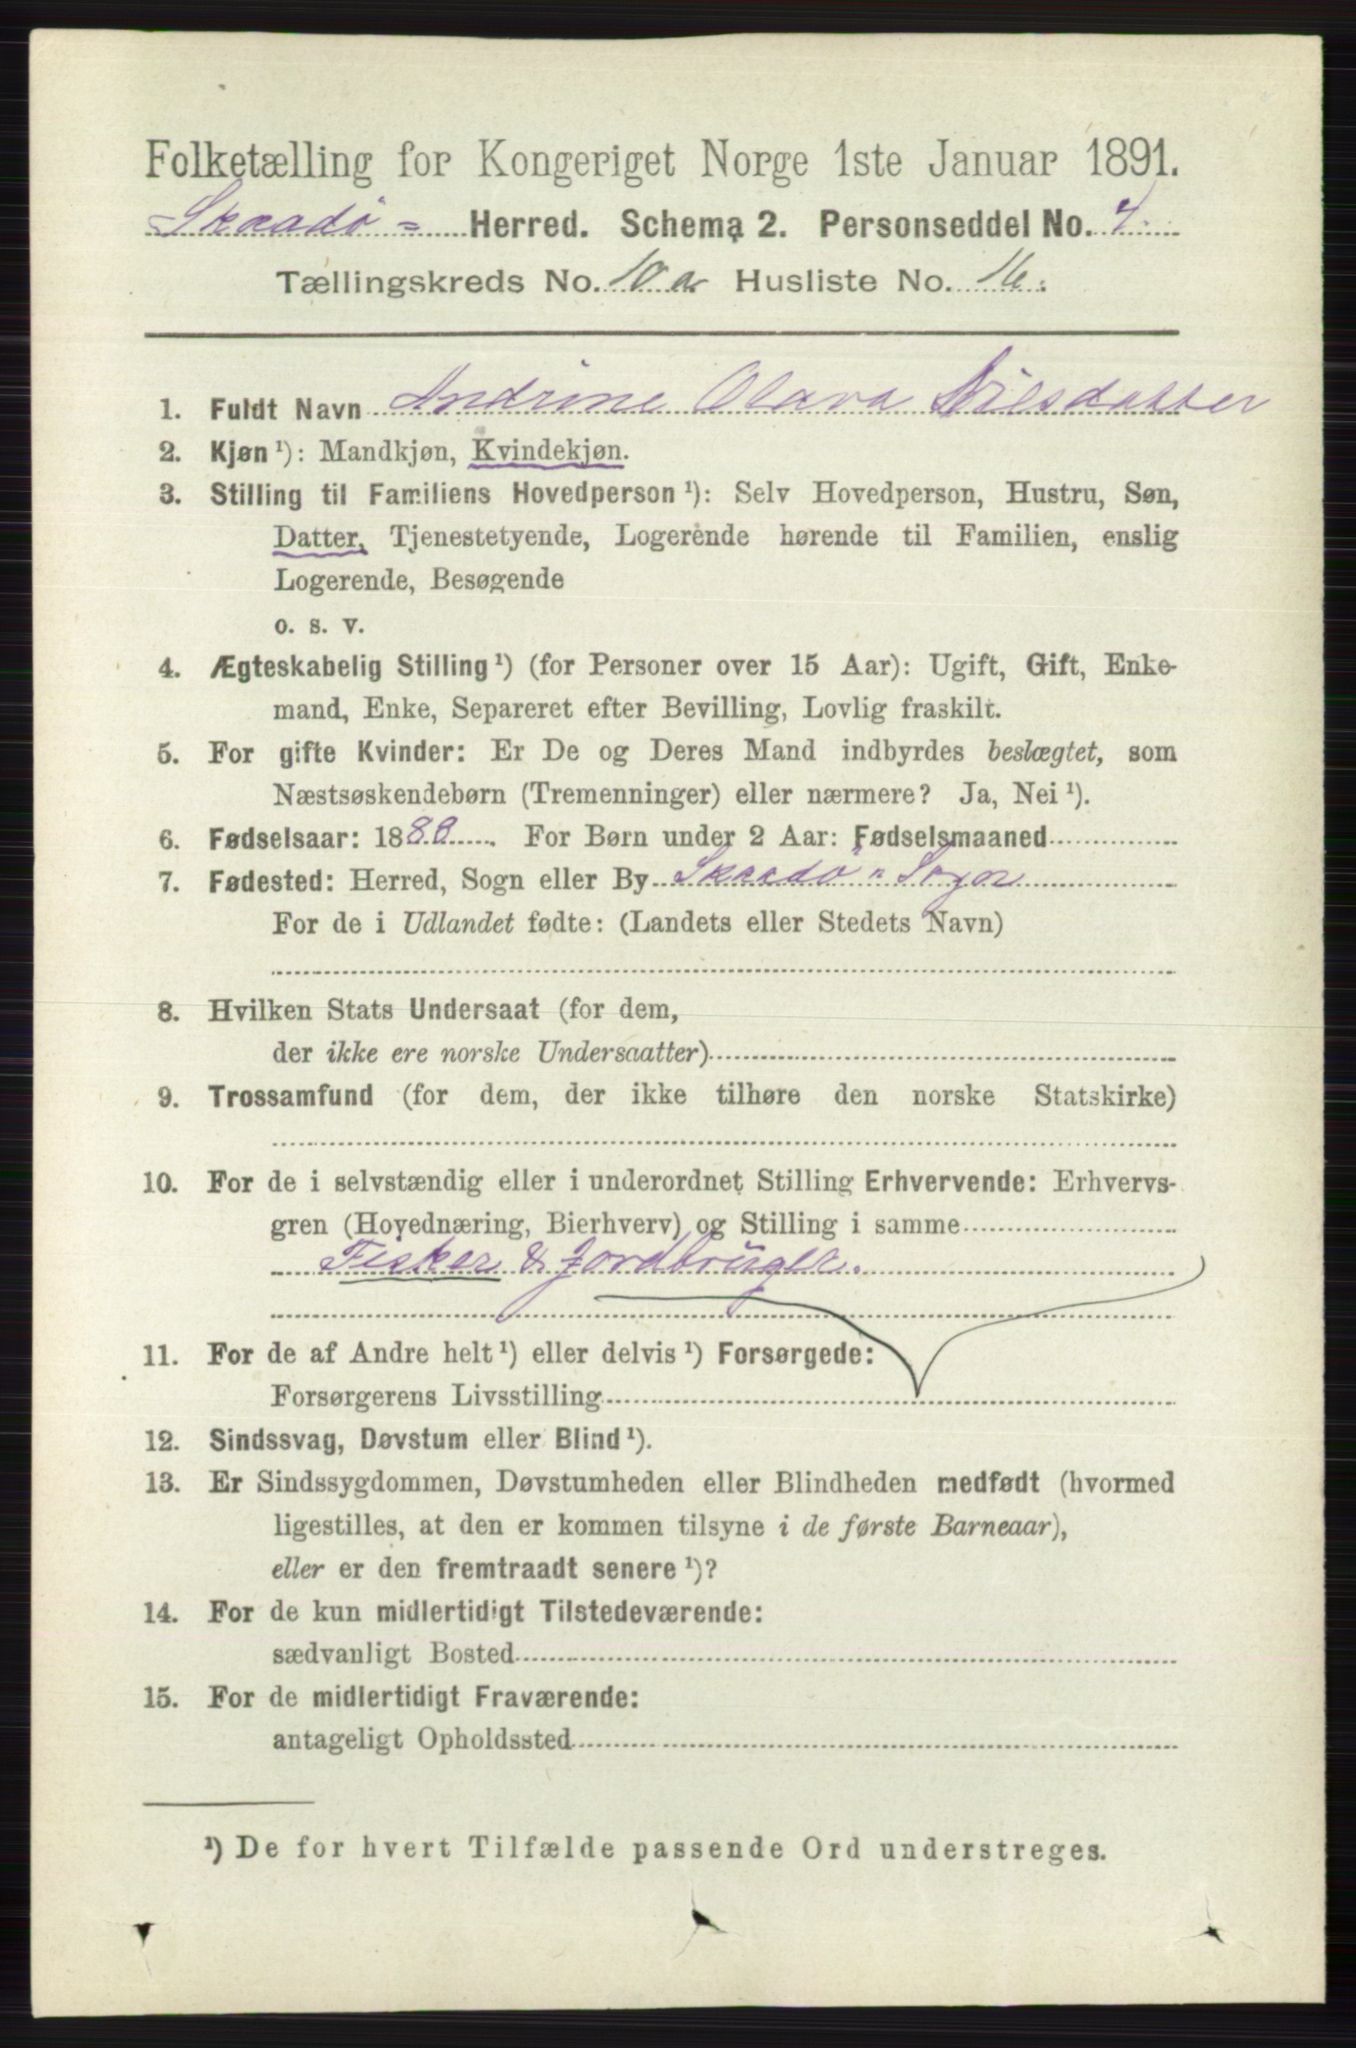 Folketælling for Kongeriget Norge 1ste Januar 1891.
Skaadø = Herred. Schema 2. Personseddel No. 4.
Tællingskreds No. 10 a Husliste No. 16.
1. Fuldt Navn Andrine Olava Nilsdatter
2. Kjøn ¹): Mandkjøn, Kvindekjøn.
3. Stilling til Familiens Hovedperson ¹): Selv Hovedperson, Hustru, Søn,
Datter, Tjenestetyende, Logerende hørende til Familien, enslig
Logerende, Besøgende
o. s. v.
4. Ægteskabelig Stilling ¹) (for Personer over 15 Aar): Ugift, Gift, Enke-
mand, Enke, Separeret efter Bevilling, Lovlig fraskilt.
5. For gifte Kvinder: Er De og Deres Mand indbyrdes beslægtet, som
Næstsøskendebørn (Tremenninger) eller nærmere? Ja, Nei ¹).
6. Fødselsaar: 1888. For Børn under 2 Aar: Fødselsmaaned
7. Fødested: Herred, Sogn eller By Skaadø " Sogn
For de i Udlandet fødte: (Landets eller Stedets Navn)
8. Hvilken Stats Undersaat (for dem,
der ikke ere norske Undersaatter)
9. Trossamfund (for dem, der ikke tilhøre den norske Statskirke)
10. For de i selvstændig eller i underordnet Stilling Erhvervende: Erhvervs-
gren (Hovednæring, Bierhverv) og Stilling i samme
Fisker & Jordbruger.
11. For de af Andre helt ¹) eller delvis ¹) Forsørgede:
Forsørgerens Livsstilling
12. Sindssvag, Døvstum eller Blind ¹).
13. Er Sindssygdommen, Døvstumheden eller Blindheden medfødt (hvormed
ligestilles, at den er kommen tilsyne i de første Barneaar),
eller er den fremtraadt senere ¹)?
14. For de kun midlertidigt Tilstedeværende:
sædvanligt Bosted
15. For de midlertidigt Fraværende:
antageligt Opholdssted
¹) De for hvert Tilfælde passende Ord understreges.